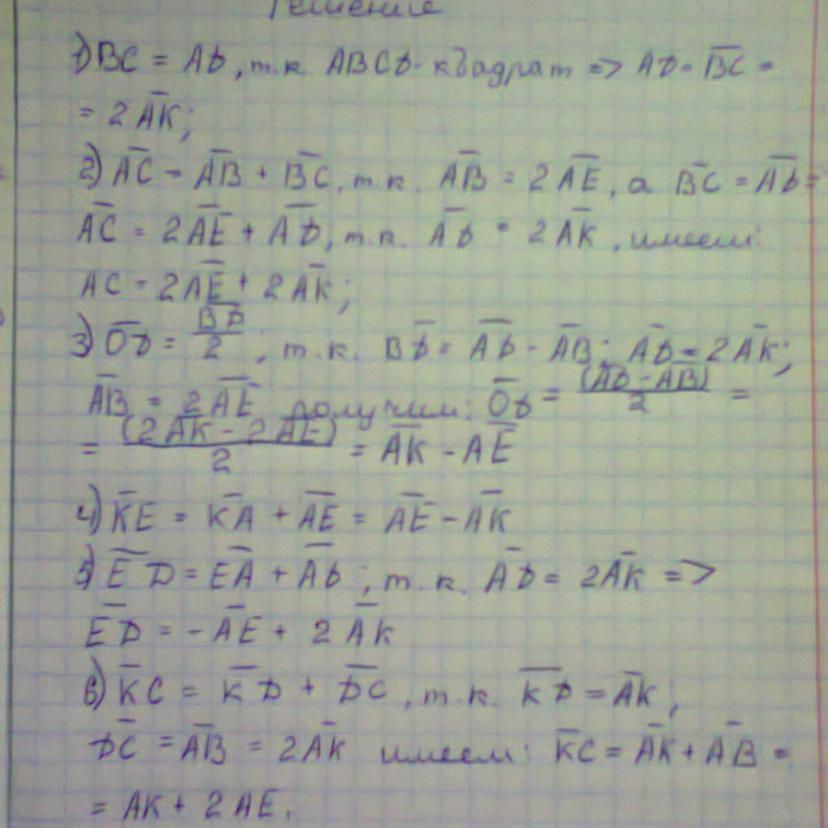 Решение
1) BC = AD, т.к. ABCD - квадрат => AD = B̅C̅ =
= 2A̅K̅;
2) A̅C̅ = A̅B̅ + B̅C̅, т.к. A̅B̅ = 2A̅E̅, а B̅C̅ = A̅D̅ =
A̅C̅ = 2A̅E̅ + A̅D̅, т.к. A̅D̅ = 2A̅K̅, имеем:
AC = 2A̅E̅ + 2A̅K̅;
3) O̅D̅ = B̅D̅/2; т.к. B̅D̅ = A̅D̅ - A̅B̅; A̅D̅ = 2A̅K̅;
A̅B̅ = 2A̅E̅ получим: O̅D̅ = (A̅D̅ - A̅B̅)/2 =
= (2A̅K̅ - 2A̅E̅)/2 = A̅K̅ - A̅E̅
4) K̅E̅ = K̅A̅ + A̅E̅ = A̅E̅ - A̅K̅
5) E̅D̅ = E̅A̅ + A̅D̅; т.к. A̅D̅ = 2A̅K̅ =>
E̅D̅ = -A̅E̅ + 2A̅K̅
6) K̅C̅ = K̅D̅ + D̅C̅, т.к. K̅D̅ = A̅K̅,
D̅C̅ = A̅B̅ = 2A̅K̅ имеем: K̅C̅ = A̅K̅ + A̅B̅ =
= AK + 2AE.